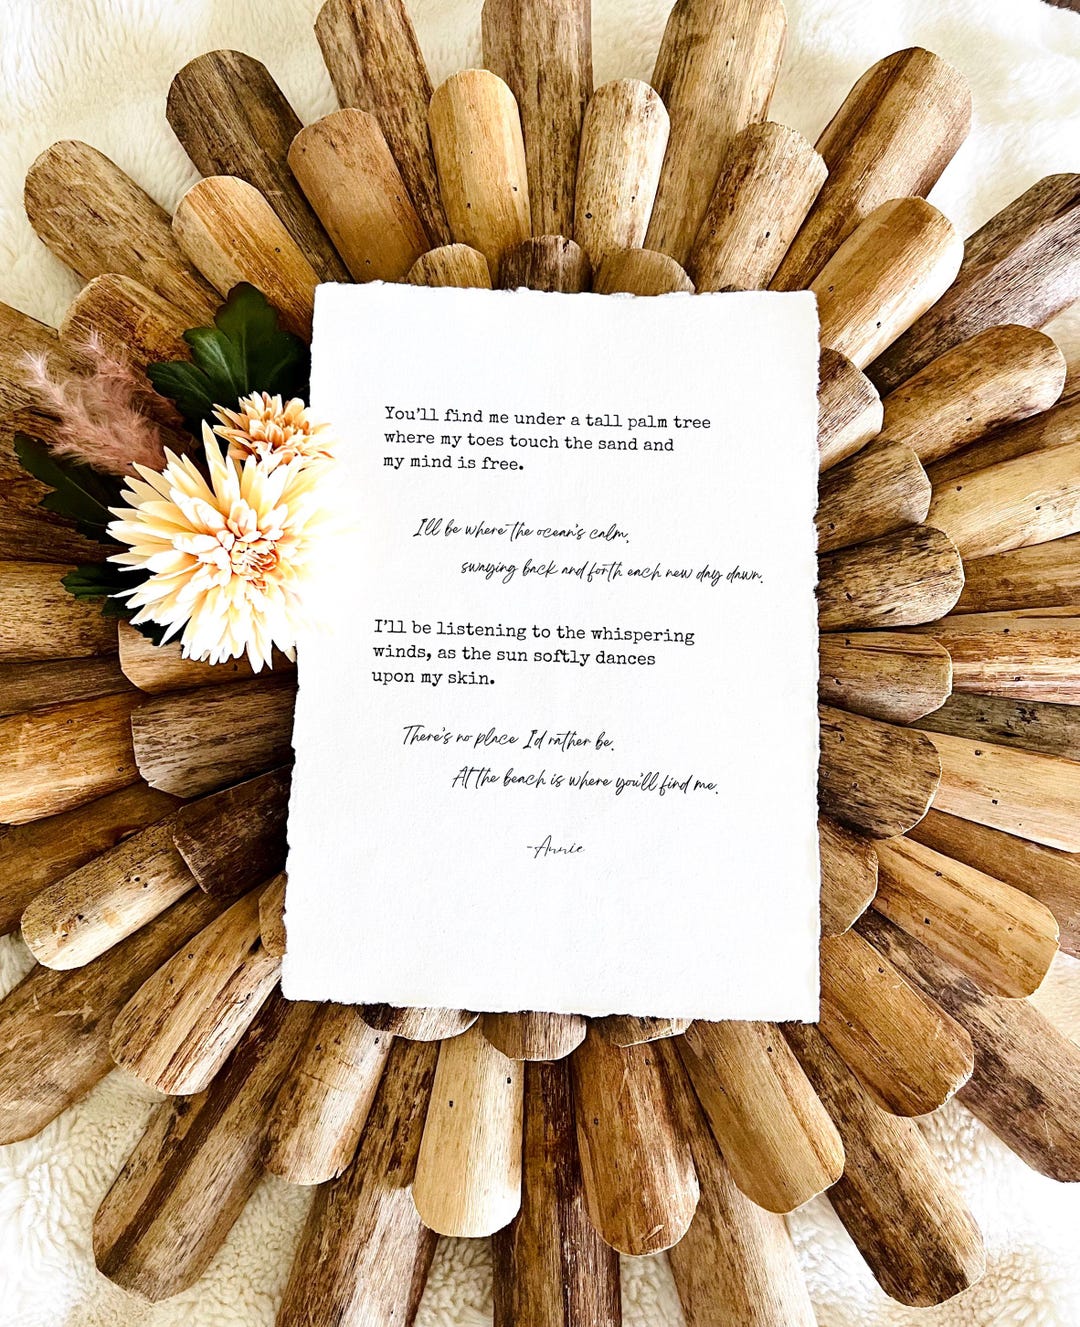 You'll find me under a tall palm tree
where my toes touch the sand and
my mind is free.
I'll be where the ocean's calm,
swaying back and forth each new day dawn.
I'll be listening to the whispering
winds, as the sun softly dances
upon my skin.
There's no place I'd rather be.
At the beach is where you'll find me.
-Annie